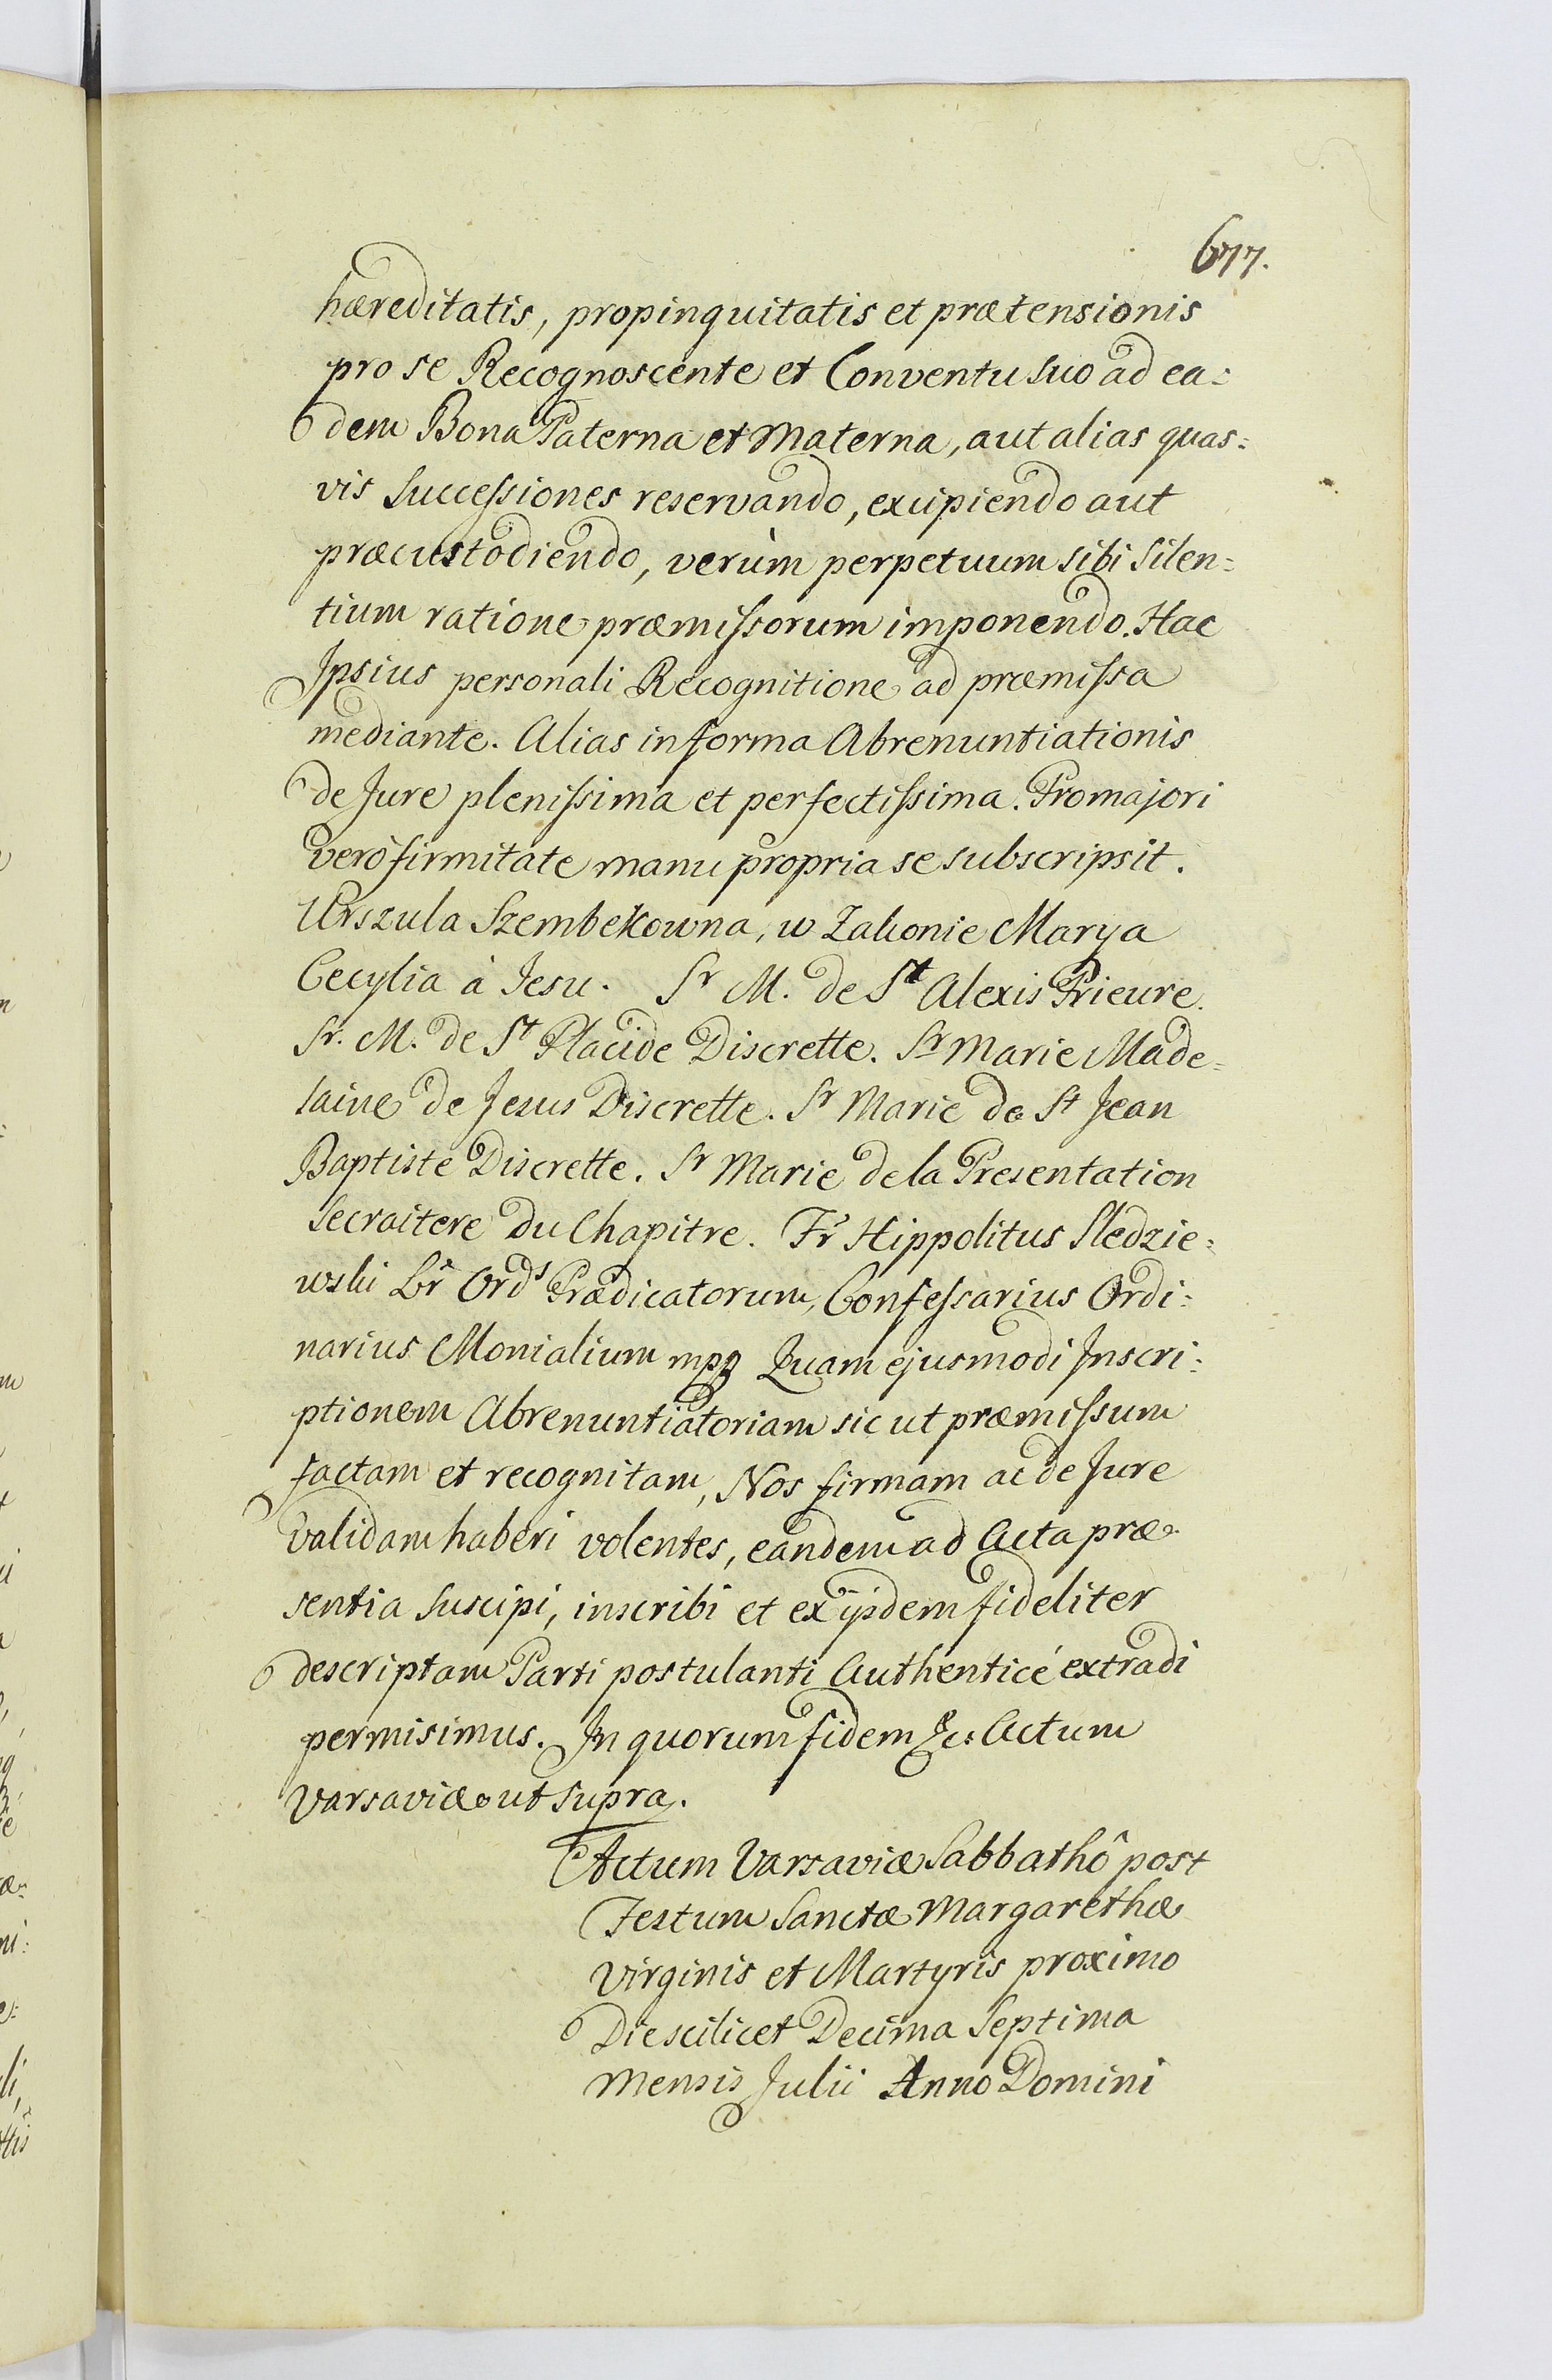 677.
hæreditatis, propinquitatis et prætensionis
pro se Recognoscente et Conventu suo ad ea=
dem Bona Paterna et Materna, aut alias quas=
vis Successiones reservando, excipiendo aut
præcustodiendo, verùm perpetuum sibi Silen=
tium ratione præmissorum imponendo. Hac
Ipsius personali Recognitione ad præmissa
mediante. Alias in forma Abrenuntiationis
de Jure plenissima et perfectissima. Pro majori
verò firmitate manu propria se subscripsit.
Urszula Szembekowna, w Zakonie Marya
Cecylia à Jesu. Sr M. de St Alexis Prieure.
Sr. M. de St Placide Discrette. Sr Marie Made=
laine de Jesus Discrette. Sr Marie de St Jean
Baptiste Discrette. Sr Marie de la Presentation
Secraitere Du Chapitre. Fr Hippolitus Sledzie=
wski Lr Ords Prædicatorum, Confessarius Ordi=
narius Monialium mpp Quam ejusmodi Inscri=
ptionem Abrenuntiatoriam sic ut præmissum
factam et recognitam, Nos firmam ac de Jure
validam haberi volentes, eandem ad Acta præ=
sentia suscipi, inscribi et ex ijsdem fideliter
descriptam Parti postulanti Authenticé extradi
permisimus. In quorum fidem &c: Actum
Varsaviæ ut supra.
Actum Varsaviæ Sabbathô post
Festum Sanctæ Margarethæ
Virginis et Martyris proximo
Die scilicet Decima Septima
Mensis Julii Anno Domini